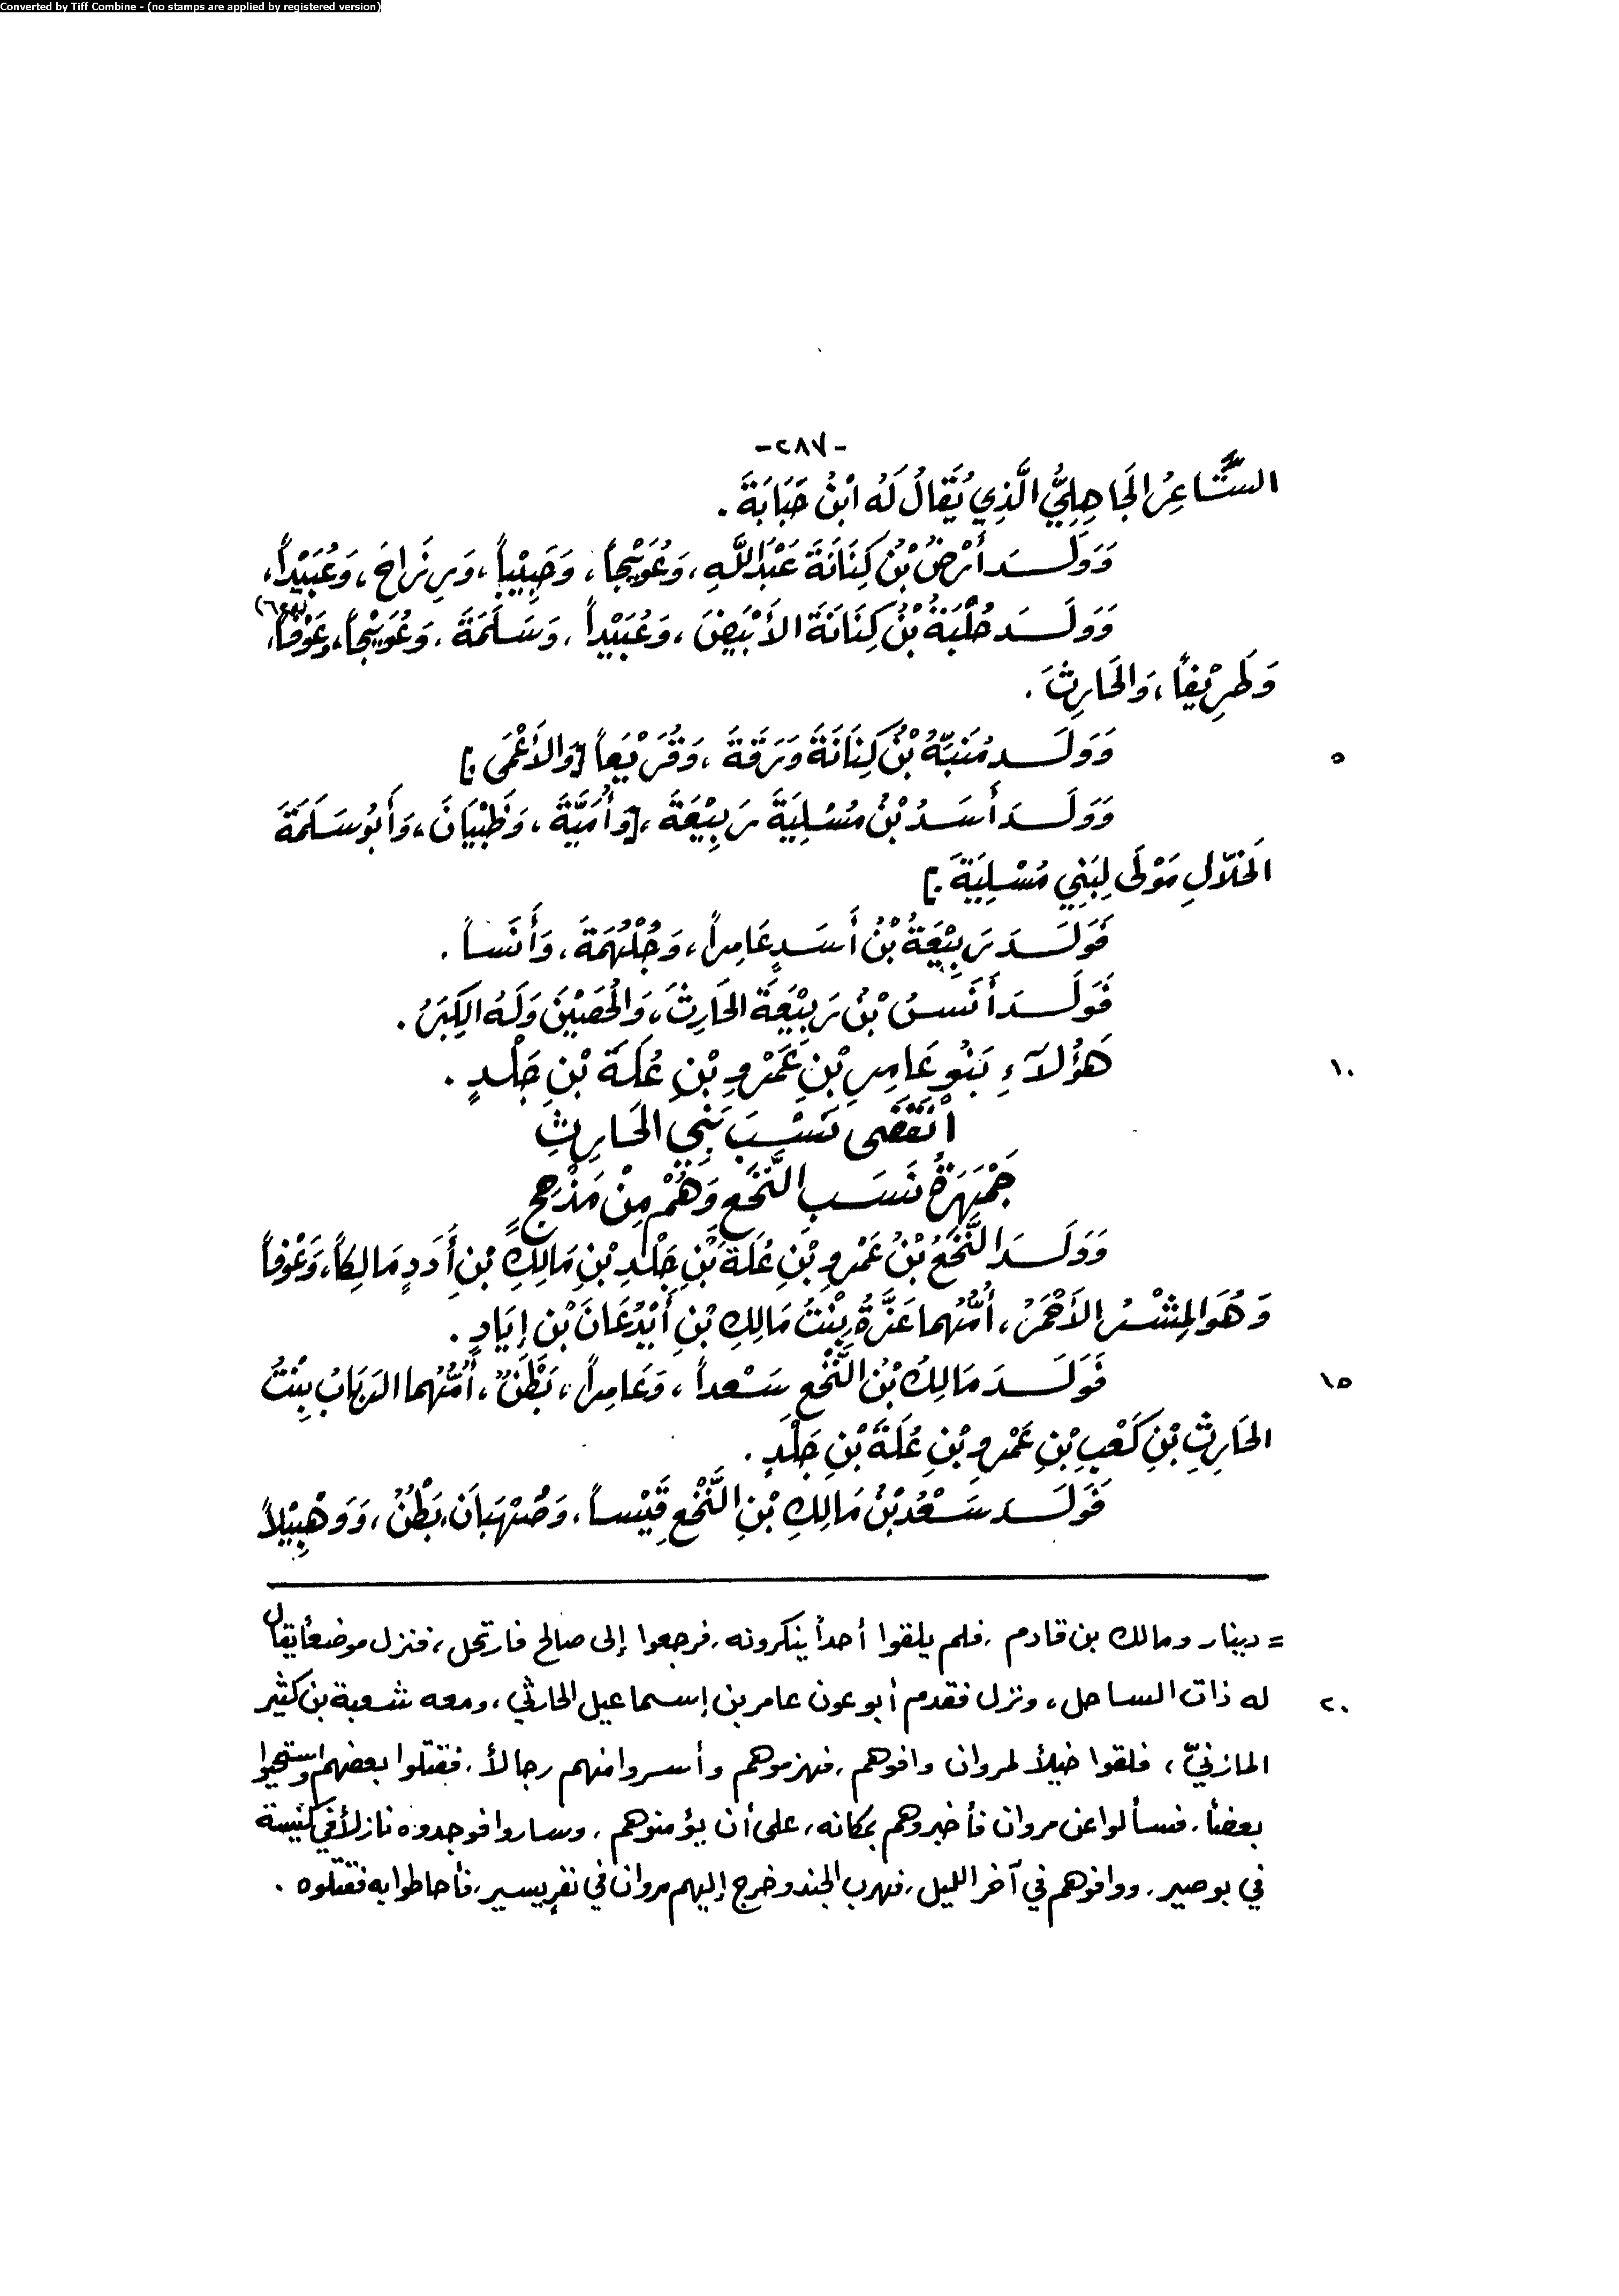 Converted by Tiff Combine - (no stamps are applied by registered version)
-٢٨٧-
الشَّاعِرُ الجَاهِلِيُّ الَّذِي يُقَالُ لَهُ ابْنُ حَبَابَةَ .
وَوَلَدَ أَرْضُ بْنُ كِنَانَةَ عَبْدَاللَّهِ، وَعُوَيْجاً، وَحَبِيْباً، وَرِزَاحَ، وَعُبَيْداً،
وَوَلَدَ حُلْبَةُ بْنُ كِنَانَةَ الأَبْيَضَ، وَعُبَيْداً، وَسَلَمَةَ، وَعُوَيْجاً، وَعَوْفاً،
وَطَرِيْفاً، وَالحَارِثَ .
٥ وَوَلَدَ مُنَبِّهُ بْنُ كِنَانَةَ وَرَقَةَ، وَقُرَيْعاً [وَالأَعْمَى .]
وَوَلَدَ أَسَدُ بْنُ مُسْلِيَةَ رَبِيْعَةَ، [وَأُمَيَّةَ، وَظَبْيَانَ، وَأَبُو سَلَمَةَ
الخَلَّالِ مَوْلَى لِبَنِي مُسْلِيَةَ .]
فَوَلَدَ رَبِيْعَةُ بْنُ أَسَدٍ عَامِراً، وَجُلْهُمَةَ، وَأَنَساً .
فَوَلَدَ أَنَسُ بْنُ رَبِيْعَةَ الحَارِثَ، وَالحُصَيْنَ وَلَهُ الكِبَرُ .
١٠ هَؤُلَآءِ بَنُو عَامِرِ بْنِ عَمْرِو بْنِ عُلَةَ بْنِ جَلْدٍ .
انْقَضَى نَسَبُ بَنِي الحَارِثِ
جَمْهَرَةُ نَسَبِ النَّخَعِ وَهُمْ مِنْ مَذْحِجٍ
وَوَلَدَ النَّخَعُ بْنُ عَمْرِو بْنِ عُلَةَ بْنِ جَلْدِ بْنِ مَالِكِ بْنِ أُدَدٍ مَالِكاً، وَعَوْفاً
وَهُوَ المِشْرُ الأَحْمَرُ، أُمُّهُما عَنَّزَةُ بِنْتُ مَالِكِ بْنِ أَيْدُعَانَ بْنِ إِيَادٍ .
١٥ فَوَلَدَ مَالِكُ بْنُ النَّخَعِ سَعْداً، وَعَامِراً، بَطْنٌ، أُمُّهُما الرَبَابُ بِنْتُ
الحَارِثِ بْنِ كَعْبِ بْنِ عَمْرِو بْنِ عُلَةَ بْنِ جَلْدٍ .
فَوَلَدَ سَعْدُ بْنُ مَالِكِ بْنِ النَّخَعِ قَيْساً، وَصُهْبَانَ، بَطْنٌ، وَوَهْبِيْلاً
= دينار ومالك بن قادم، فلم يلقوا أحداً ينكرونه، فرجعوا إلى صالح فارتحل، فنزل موضعاً يقال
٢٠ له ذات الساحل، ونزل فقدم أبوعون عامر بن إسماعيل الحارثي، ومعه شعبة بن كثير
المازنيّ، فلقوا خيلاً لمروان وافوهم، فهزموهم وأسروا منهم رجالاً، فقتلوا بعضهم واستحيوا
بعضاً، فسألوا عن مروان فأخبروهم بمكانه، على أن يؤمنوهم، وساروا فوجدوه نازلاً في كنيسة
في بوصير، ووافوهم في آخر الليل، فهرب الجند وخرج إليهم مروان في نفر يسير، فأحاطوا به فقتلوه .